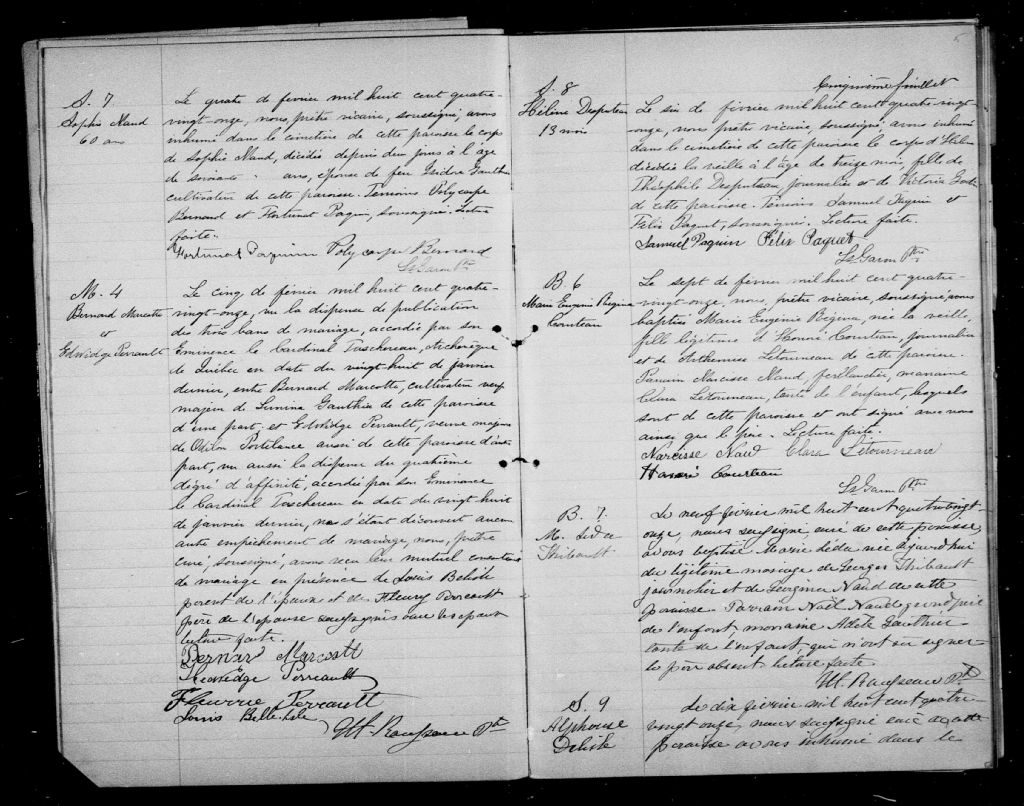 S. 7
Sophie Naud
60 ans
Le quatre de fevrier mil huit cent quatre-
vingt-onze, nous, prêtre vicaire, soussigné, avons
inhumé dans le cimetière de cette paroisse le corps
de Sophie Naud, décédée depuis deux jours à l'âge
de soixante ans, épouse de feu Isidre Gauthier
cultivateur de cette paroisse. Temoins Polycarpe
Bernard et Fortunat Paquin, soussignés. Lecture
faite.
Fortunat Paquin Polycarpe Bernard
Ptre
M. 4
Bernard Marcotte
et
Edwidge Perrault
Le cinq de février mil huit cent quatre-
vingt-onze, vu la dispense de publication
des trois bans de mariage, accordée par son
Eminence le Cardinal Taschereau, Archevêque
de Québec en date du vingt-huit de janvier
dernier, entre Bernard Marcotte, cultivateur veuf
majeur de Gauthier de cette paroisse
d'une part, et Edwidge Perrault, veuve majeure
de Portelance aussi de cette paroisse d'autre
part, vu aussi la dispense du quatrième
degré d'affinité, accordée par son Eminence
le Cardinal Taschereau en date du vingt huit
de janvier dernier, ne s'étant découvert aucun
autre empêchement de mariage, nous, prêtre
curé, soussigné, avons reçu leur mutuel consentement
de mariage en présence de Louis Belisle
parent de l'époux et de Fleury Perreault
père de l'épouse soussignés avec les époux
lecture faite.
Bernar Marcott
Hedwidge Perreault
Fleurrie Perrault
Louis Belle-Isle
Ptr
S. 8
Hélène Desputeau
13 mois
Cinquième feuillet
Le six de février mil huit cent quatre-vingt-
onze, nous, prêtre vicaire, soussigné, avons inhumé
dans le cimetière de cette paroisse le corps d'Hélène
décédée la veille à l'âge de treize mois, fille de
Théophile Desputeau, journalier et de Victoria
de cette paroisse. Témoins Samuel Paquin et
Felix Paquet, soussignés. Lecture faite.
Samuel Paquin Felix Paquet
Ptre
B. 6
Marie Eugenie Regina
Courteau
Le sept de février mil huit cent quatre-
vingt-onze, nous, prêtre vicaire, soussigné, avons
baptisé Marie Eugenie Régina, née la veille,
fille légitime d'Honoré Courteau, journalier
et de Arthemise Létourneau de cette paroisse.
Parrain Narcisse Naud, ferblantier, marraine
Clara Létourneau, tante de l'enfant, lesquels
sont de cette paroisse et ont signé avec nous
ainsi que le père. Lecture faite.
Narcisse Naud Clara Létourneau
Honoré Courteau
Ptre
B. 7.
M. Léda
Thibault
Le neuf février mil huit cent quatre vingt-
onze, nous soussigné, curé de cette paroisse,
avons baptisé Marie Léda née aujourd'hui
du légitime mariage de Georges Thibault
journalier et de Georgina Naud de cette
paroisse Parrain Noël Naud grand père
de l'enfant, marraine Adele Gauthier
tante de l'enfant, qui n'ont su signer
le père absent lecture faite
Ptr
S. 9
Alphonse
Delisle
Le dix février mil huit cent quatre
vingt onze, nous soussigné curé de cette
paroisse avons inhumé dans le